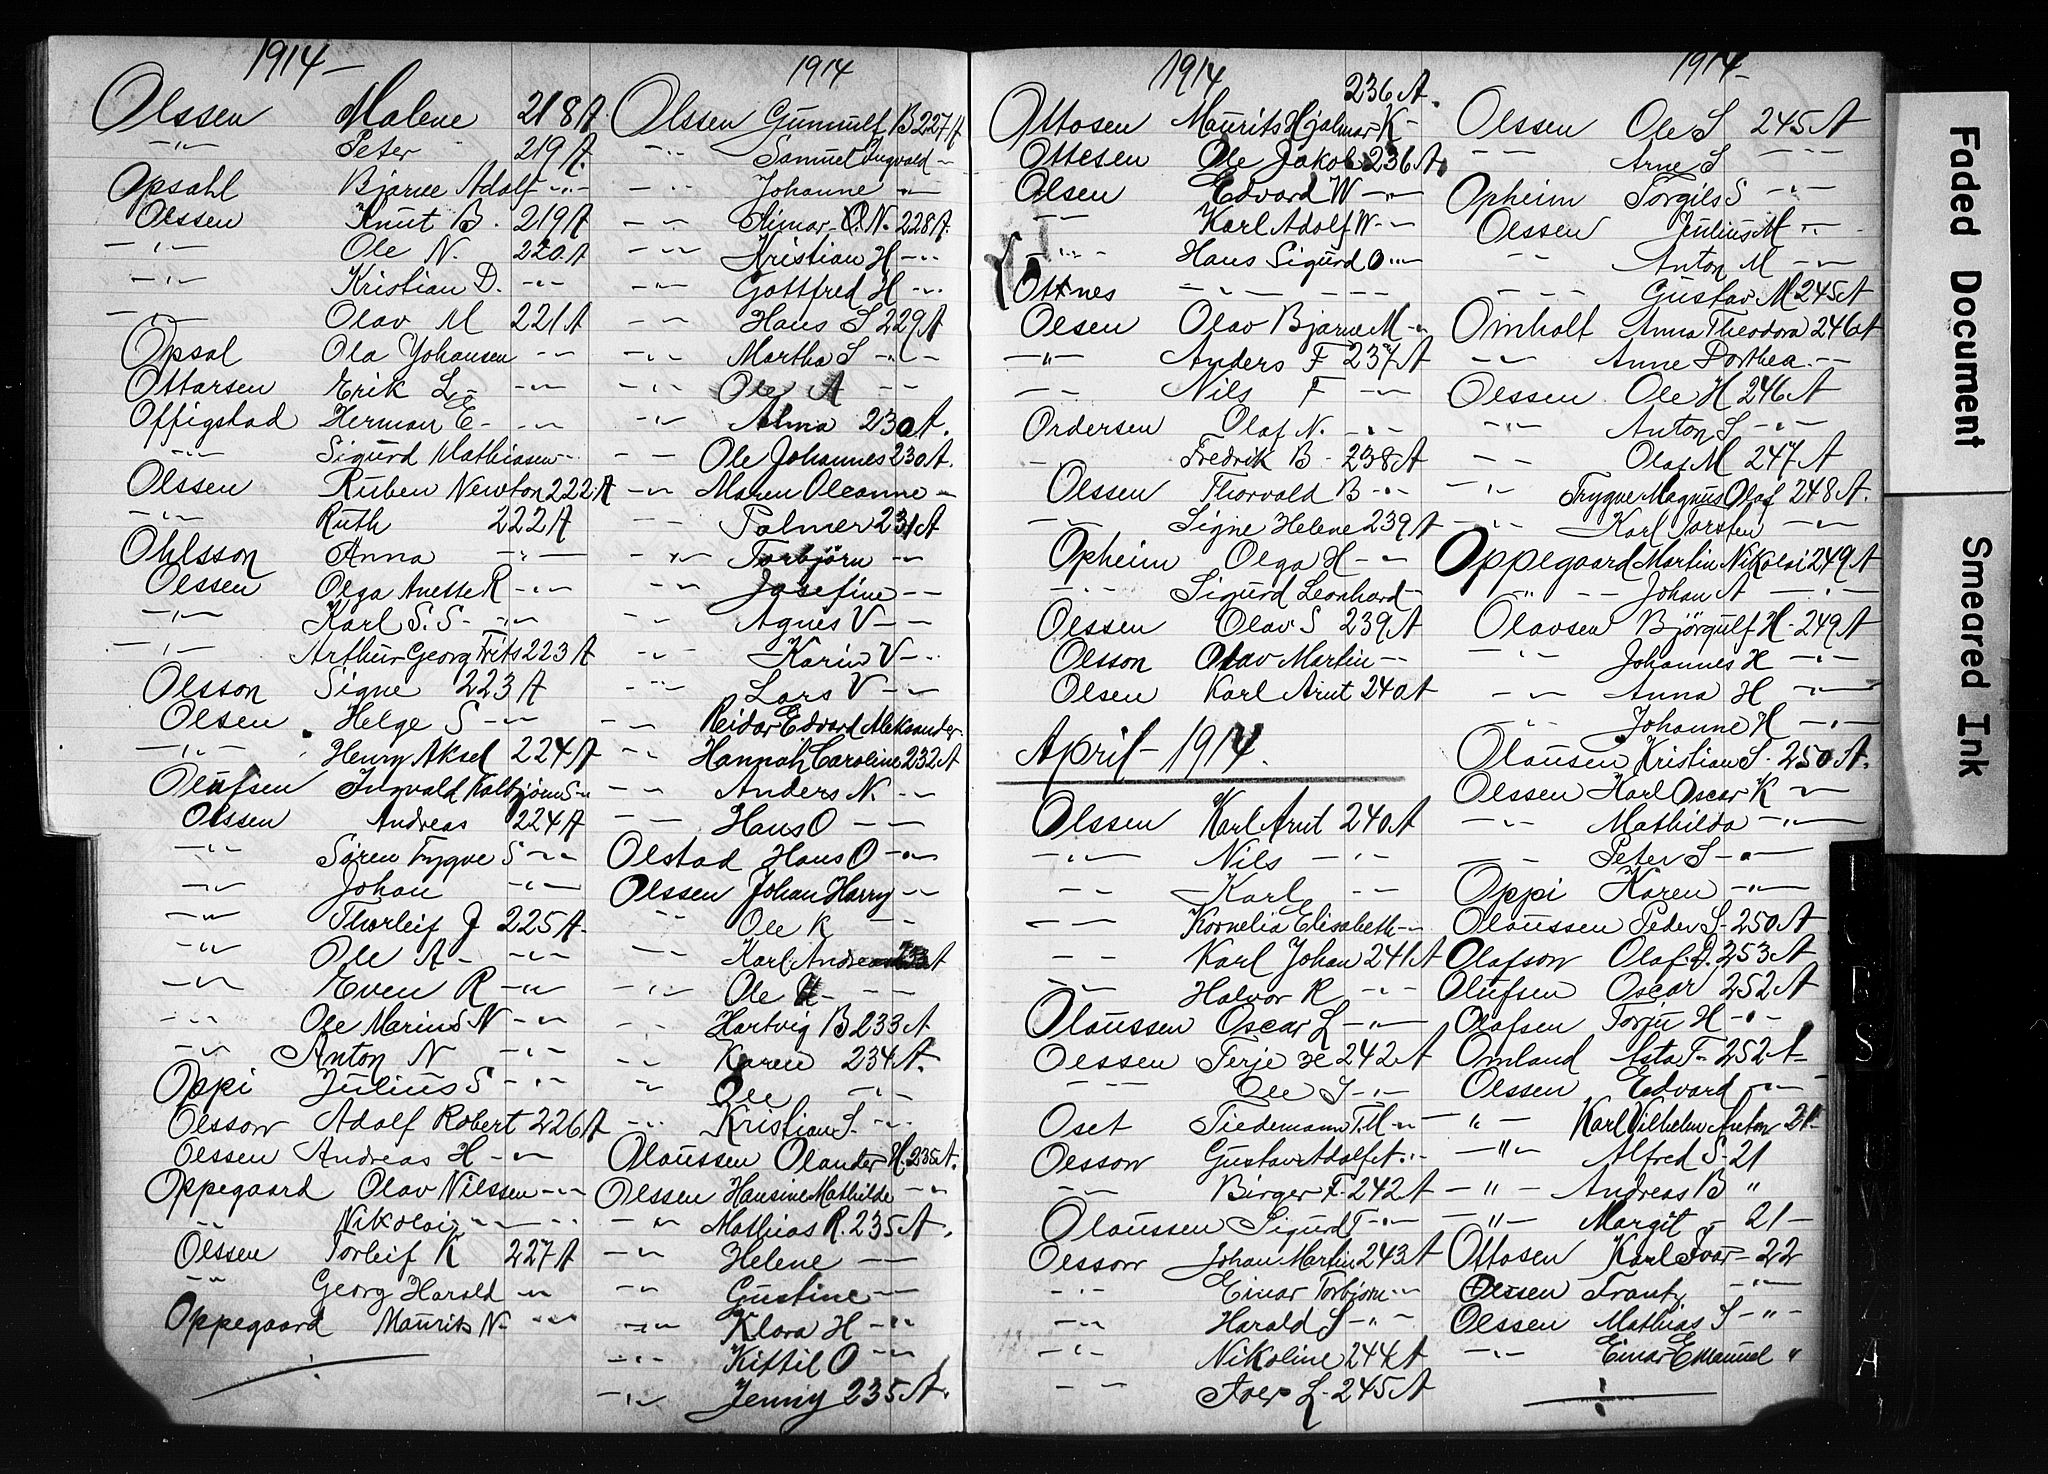 1914 –
Olssen Malene 218 A.
-"- Peter - 219 A.
Opsahl Bjarne Adolf -"-
Olssen Knut B. 219 A
-"- Ole N. 220 A
-"- Kristian D. -"-
-"- Olav M 221 A
Opsal Ola Johansen -"-
Ottarsen Erik L - -"-
Offigstad Herman E - -"-
-"- Sigurd Mathiasen -"-
Olssen Ruben Newton 222 A
-"- Ruth 222 A
Ohlsson Anna -"-
Olssen Olga Anette R -"-
-"- Karl S. S - -"-
-"- Arthur Georg Frits 223 A
Olsson Signe 223 A
Olsen Helge S -"-
-"- Henry Aksel 224 A
Olufsen Ingvald Kolbjørn S -"-
Olssen Andreas 224 A
-"- Søren Trygve S -"-
-"- Johan -"-
-"- Thorleif J 225 A
-"- Ole A - -"-
-"- Even R -"-
-"- Ole Marius N -"-
-"- Anton N -"-
Oppi Julius S -"-
Olsson Adolf Robert 226 A
Olssen Andreas H -"-
Oppegaard Olav Nilssen -"-
-"- Nikolai -"-
Olssen Torleif K 227 A
-"- Georg Harald -"-
Oppegaard Maurits N. -"-
1914
Olssen Gunnulf B 227 A
-"- Samuel Ingvald -"-
-"- Johanne -"-
-"- Aimar O. N. 228 A.
-"- Kristian H -"-
-"- Gottfred H -"-
-"- Hans S 229 A
-"- Martha S -"-
-"- Ole A -"-
-"- Alma 230 A.
-"- Ole Johannes 230 A.
-"- Maren Oleanne -"-
-"- Palmer 231 A
-"- Torbjörn -"-
-"- Josefine -"-
-"- Agnes V -"-
-"- Karin V -"-
-"- Lars V -"-
-"- Reidar Edvard Aleksander -
-"- Hannah Caroline 232 A
-"- Anders N. -"-
-"- Hans O -"-
Olstad Hans O -"-
Olssen Johan Harry -"-
-"- Ole K -"-
-"- Karl Andreas 233 A
-"- Ole -"-
-"- Hartvig B 233 A
-"- Karen 234 A.
-"- Ole -"-
-"- Kristian S. -"-
Olaussen Olander H. 235 A.
Olssen Hansine Mathilde -"-
-"- Mathias R. 235 A.
-"- Helene -"-
-"- Gustine -"-
-"- Klara H -"-
-"- Kittil O -"-
-"- Jenny 235 A.
1914
236 A.
Ottosen Maurits Hjalmar K -
Ottesen Ole Jakob 236 A.
Olsen Edvard W -"-
-"- Karl Adolf W -"-
-"- Hans Sigurd O -"-
Ottnes -"- -"-
Olsen Olav Bjarne M -"-
-"- Anders F 237 A
-"- Nils F -"-
Ordersen Olaf N. -"-
- Fredrik B - 238 A
Olssen Thorvald B -"-
-"- Signe Helene 239 A
Opheim Olga H -"-
-"- Sigurd Leonhard -
Olssen Olav S 239 A
Olsson Olav Martin -"-
Olsen Karl Arnt 240 A
April - 1914.
Olssen Karl Arnt 240 A
-"- Nils -"-
-"- Karl -"-
-"- Kornelia Elisabeth -"-
-"- Karl Johan 241 A
-"- Halvor R -"-
Olaussen Oscar L -"-
Olssen Terje H 242 A
-"- Ole S -"-
Oset Tiedemann T. M -"-
Olsson Gustav Adolf A. -"-
-"- Birger F. 242 A
Olaussen Sigurd T -"-
Olsson Johan Martin 243 A
-"- Einar Torbjørn -"-
-"- Harald S -"-
-"- Nikoline 244 A
-"- Iver L - 245 A
1914 -
Olssen Ole S 245 A
-"- Arne S -"-
Opheim Torgils S -"-
Olssen Julius M -"-
-"- Anton M -"-
-"- Gustav M 245 A
Omholt Anna Theodora 246 A
-"- Anne Dorthea -"-
Olssen Ole H 246 A
-"- Anton S -"-
-"- Olaf M 247 A
-"- Trygve Magnus Olaf 248 A.
-"- Karl Torsten -"-
Oppegaard Martin Nikolai 249 A
-"- Johan A -"-
Olavsen Björgulf H - 249 A
-"- Johannes H -"-
-"- Anna H -"-
-"- Johanne H -"-
Olausen Kristian S. 250 A.
Olssen Karl Oscar K -"-
-"- Mathilda -"-
-"- Peter S -"-
Oppi Karen -"-
Olaussen Peder S - 250 A
Olafson Olaf. D. 253 A
Olufsen Oscar 252 A
Olafsen Torju H -"-
Omland Asta T - 252 A -
Olssen Edvard -"-
-"- Karl Vilhelm Anton 21 -
-"- Alfred S - 21
-"- Andreas B "
-"- Margit - 21 -
Ottosen Karl Ivar - 22
Olssen Frantz -"-
Olssen Mathias S -"-
-"- Einar Emanuel "
Faded Document
Smeared Ink